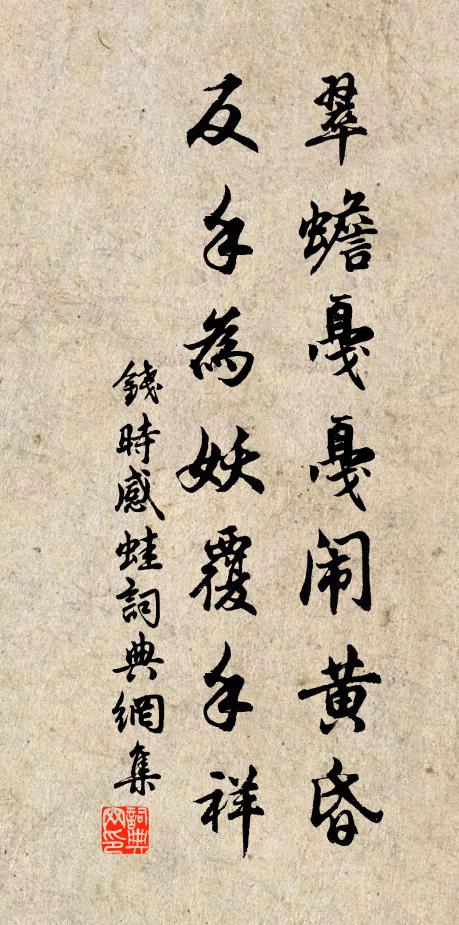 翠蟾戛戛闹黄昏
反手為妖覆手祥
錢時感蛙詞典網集
詞典网印